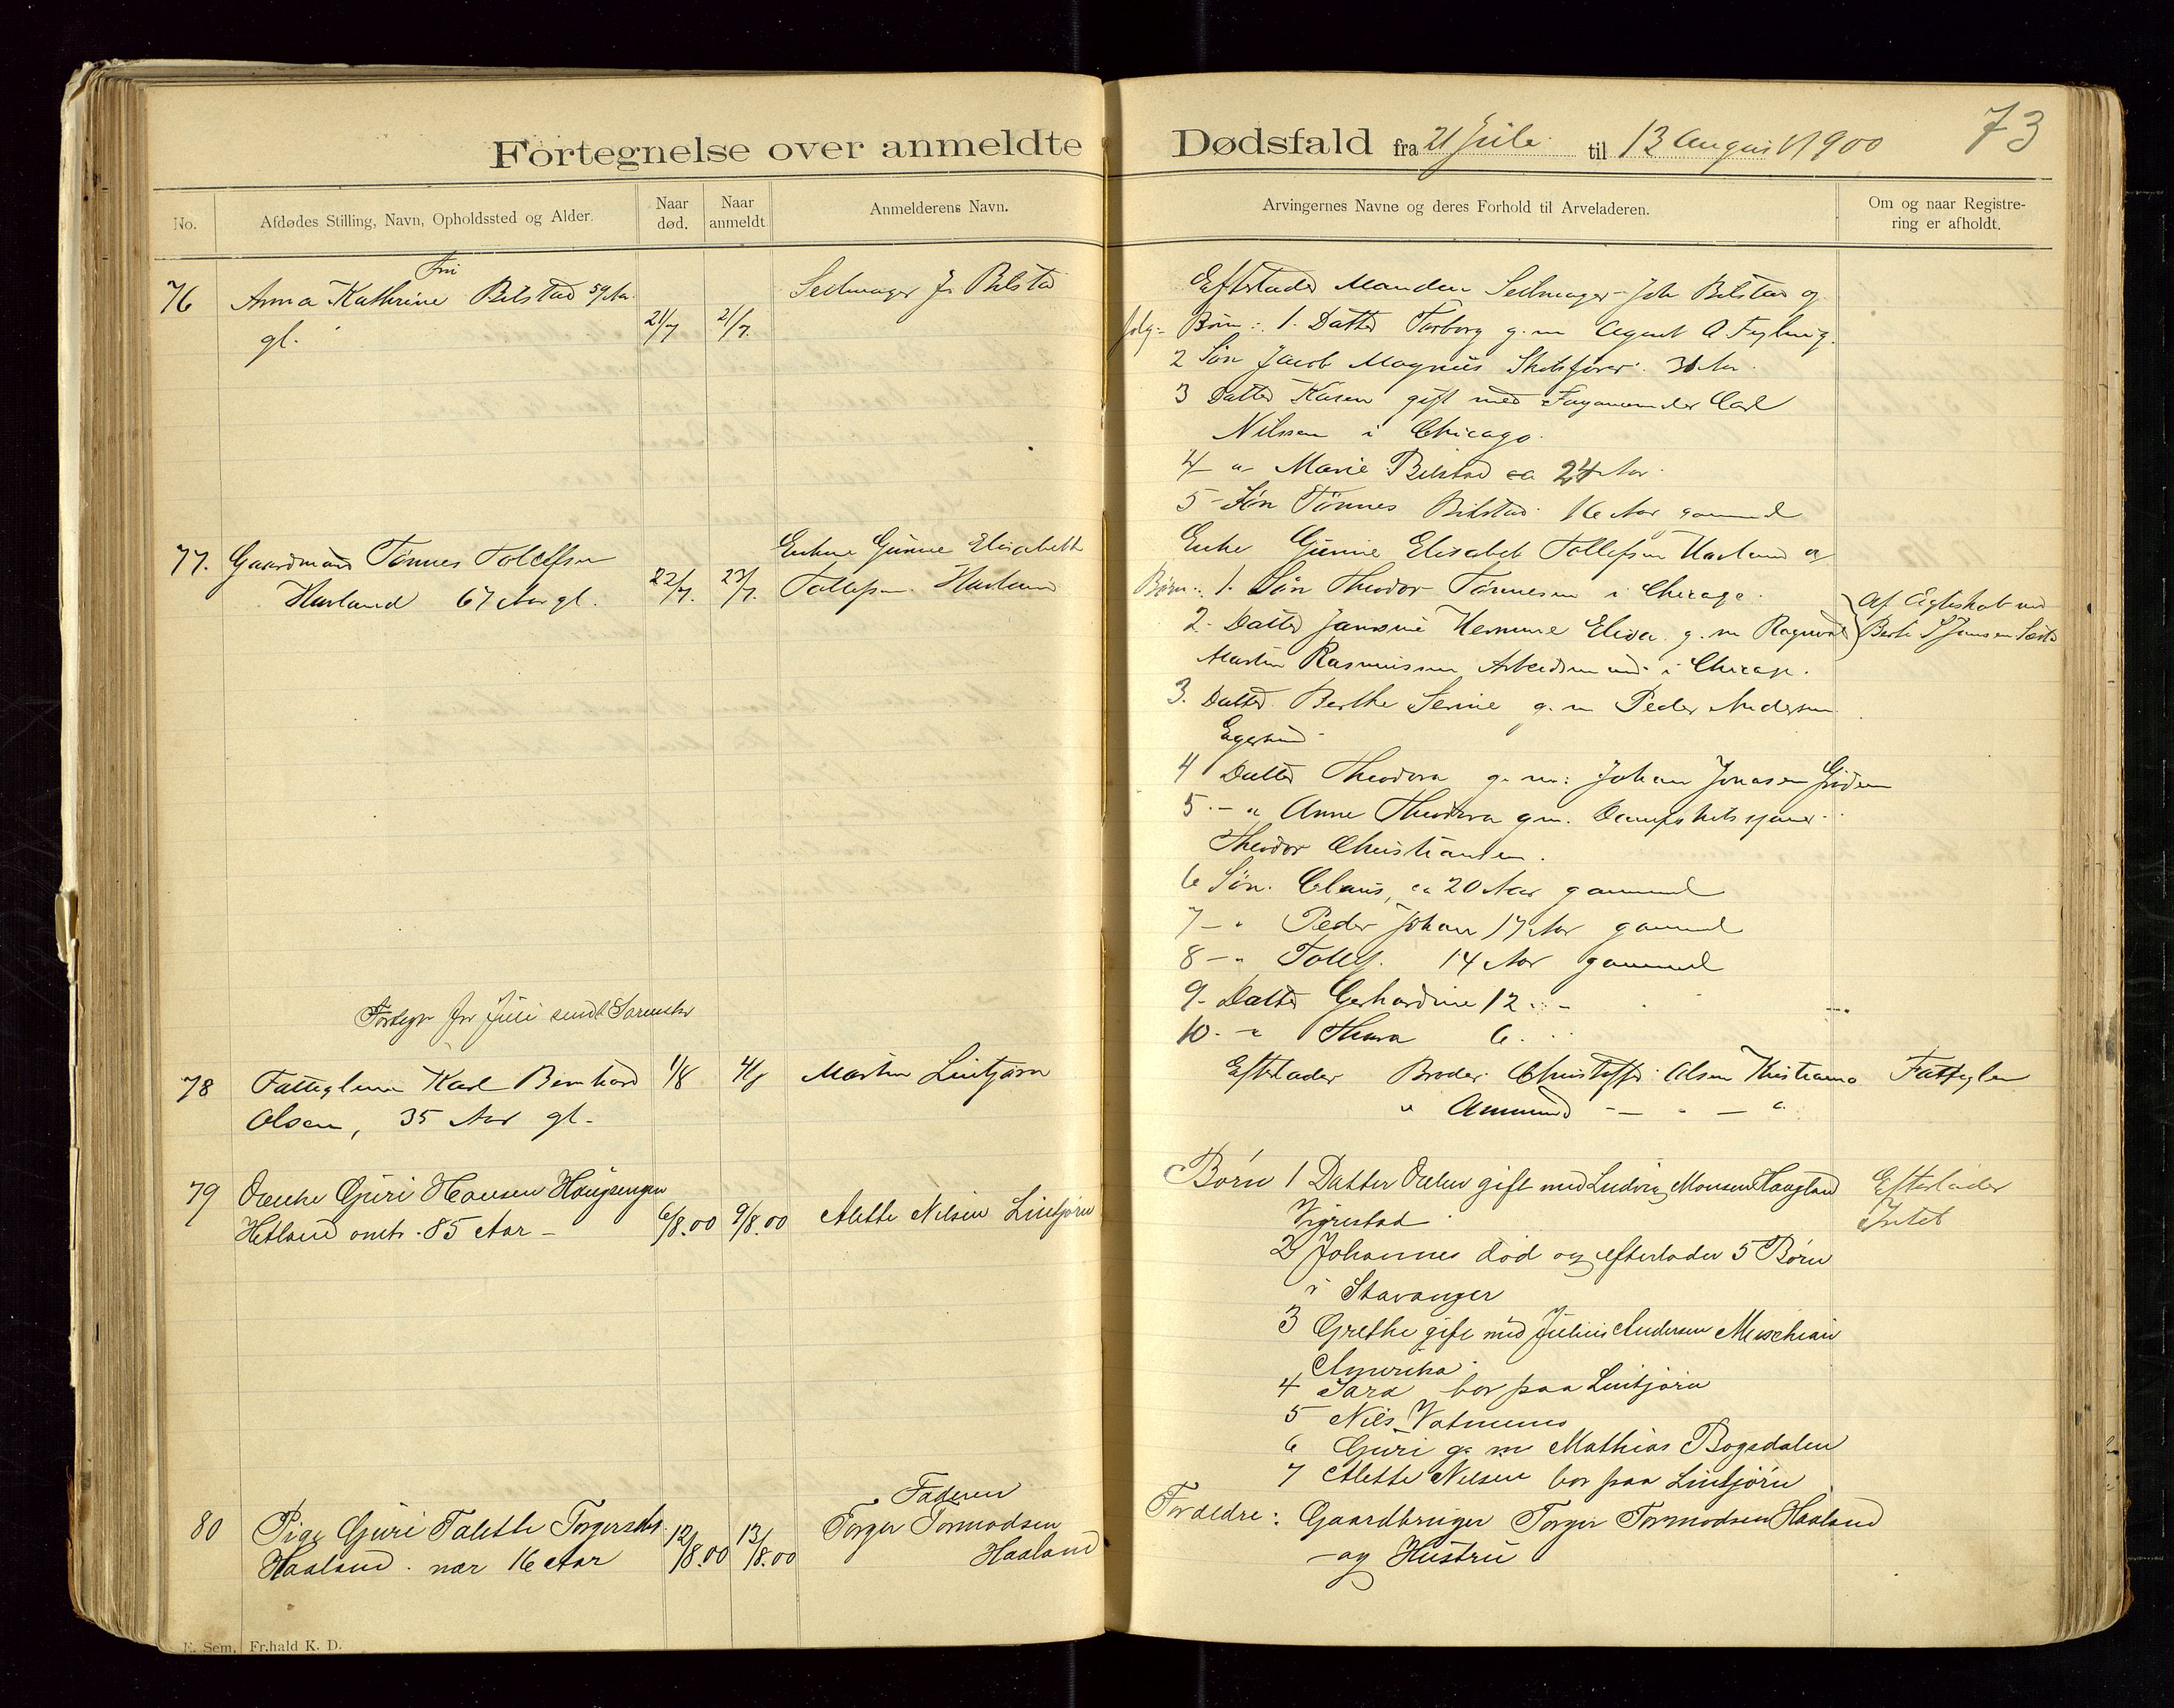 Fortegnelse over anmeldte Dødsfald fra 21 Juli til 13 August 1900
73
No.
Afdødes Stilling, Navn, Opholdssted og Alder.
Naar død.
Naar anmeldt
Anmelderens Navn.
Arvingernes Navne og deres Forhold til Arveladeren.
Om og naar Registrering er afholdt.
76
Fru
Anna Kathrine Bilstad 59 Aar
gl.
21/7
21/7.
Seilmager J. Bilstad
Efterlader Manden Seilmager Joh Bilstad og
følg. Børn: 1. Datter Torborg g. m Agent A
2 Søn Jacob Magnus Skibsfører
3 Datter Karen gift med Carl
Nilssen i Chicago.
4 - " Marie Bilstad ca 24 Aar.
5 - Søn Tønnes Bilstad 16 Aar gammel
77. Gaardmand Tønnes Tollefsen
Havland 67 Aar gl.
22/7.
23/7.
Enken Gunne Elisabeth
Tollefsen Havland
Enke Gunne Elisabet Tollefsen Havland og
Børn: 1. Søn Theodor Tønnesen i Chicago.
2. Datter g. m Ragnvald
Martin Rasmussen Arbeidsmand i Chicago.
Af Egteskab med
3. Datter Berthe Serine g. m Peder Andersen
Egersund
4 Datter Theodora g. m: Johan Jonasen
5. - " Anne Theodora g m.
Theodor Christiansen.
6 Søn. Claus, ca 20 Aar gammel
7 - " Peder Johan 17 Aar gammel
8 - " Tollef. 14 Aar gammel
9 - Datter Gerhardine 12 " -
10. - " Thora 6.
Fortegn for Juli sendt Sorenskr
78
Fattiglem Karl Bernhard
Olsen, 35 Aar gl.
1/8
4/8
Martin Lintjørn
Efterlader Broder Christoffer Olsen Kristiania
" Ammund - " - "
Fattiglem
79
Enke Guri Hansen
Hetland omtr. 85 Aar -
6/8.00
9/8.00
Alette Nilsen Lintjørn
Børn 1 Datter gift med Ludvig Monsen Haugland
Vigrestad
2 Johannes død og efterlader 5 Børn
i Stavanger
3 Grethe gift med Julius Andersen
Amerika
4 Sara bor paa Lintjørn
5 Nils Vatnemo
6 Guri g. m Mathias Bogsdalen
7 Alette Nilsen bor paa Lintjørn
Efterlader
Intet
80
Pige Guri Talette Torgersdtr.
Haaland. nær 16 Aar
12/8.00
13/8.00
Faderen
Torger Tormodsen
Haaland
Forældre: Gaardbruger Torger Tormodsen Haaland
- og Hustru
E. Sem, Fr.hald K. D.